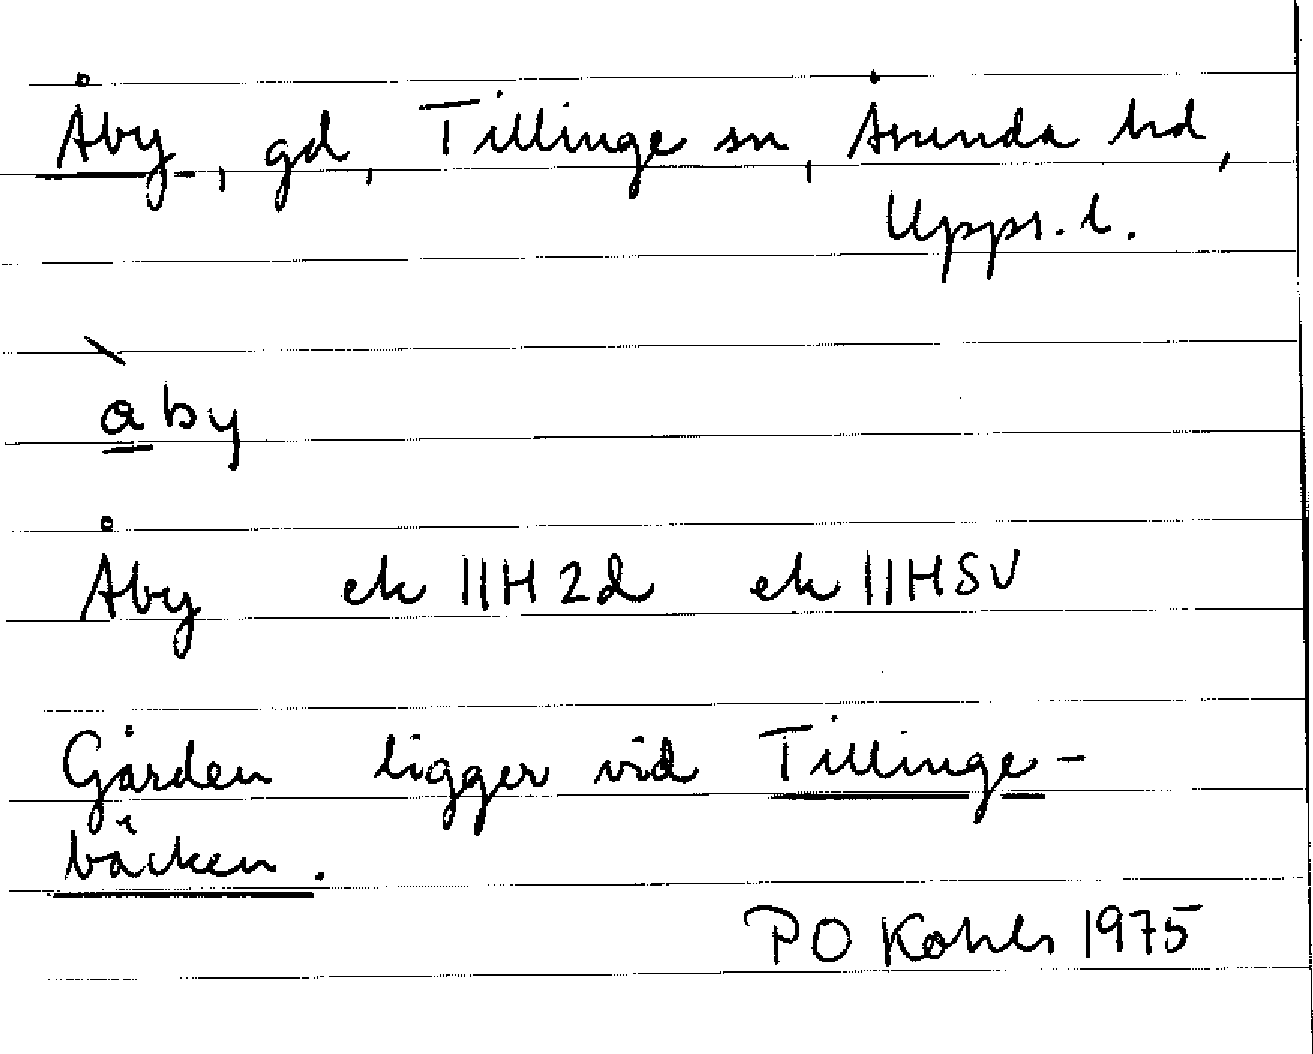 Åby, gd, Tillinge sn, Åsunda hd,
Upps. l.
̀aby
Åby ek 11H2d ek 11HSV
Gården ligger vid Tillinge-
bäcken.
PO Kohls 1975